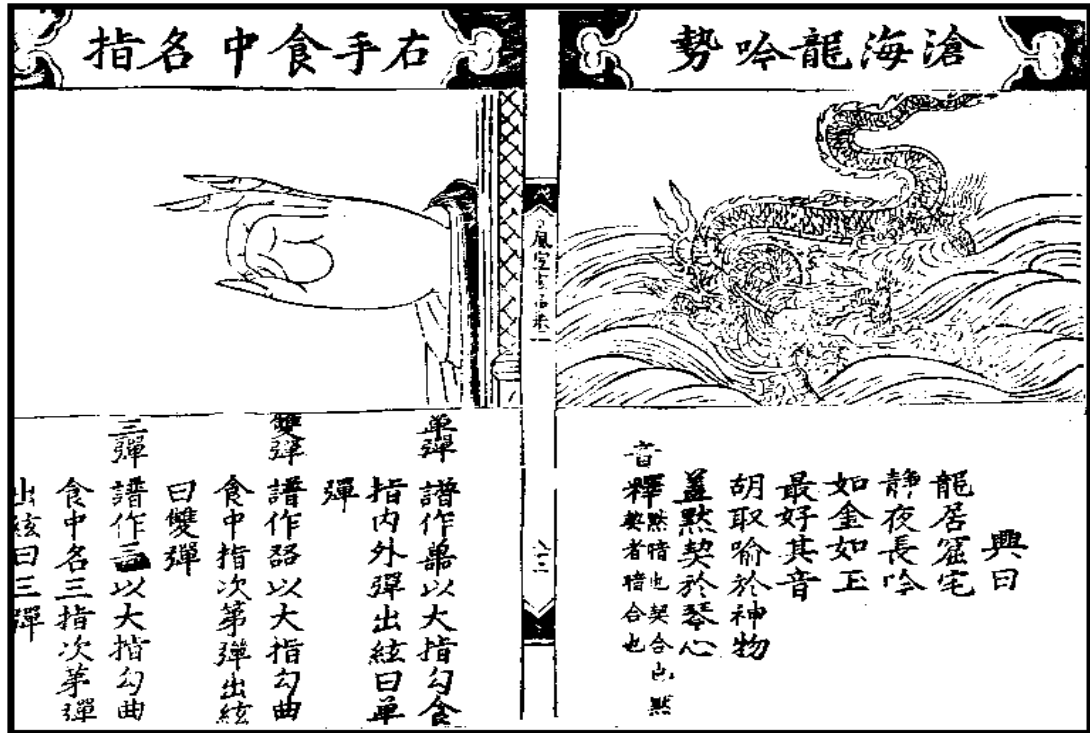 滄海龍吟勢
興曰
龍居窟宅
靜夜長吟
如金如玉
最好其音
胡取喻於神物
蓋默契於琴心
音釋
默暗也契合也默
契者暗合也
風宣玄品卷二
右手食中名指
單彈 譜作 以大指勾食
指內外彈出絃曰單
彈
雙彈 譜作 以大指勾曲
食中指次第彈出絃
曰雙彈
三彈 譜作 以大指勾曲
食中名三指次第彈
出絃曰三彈